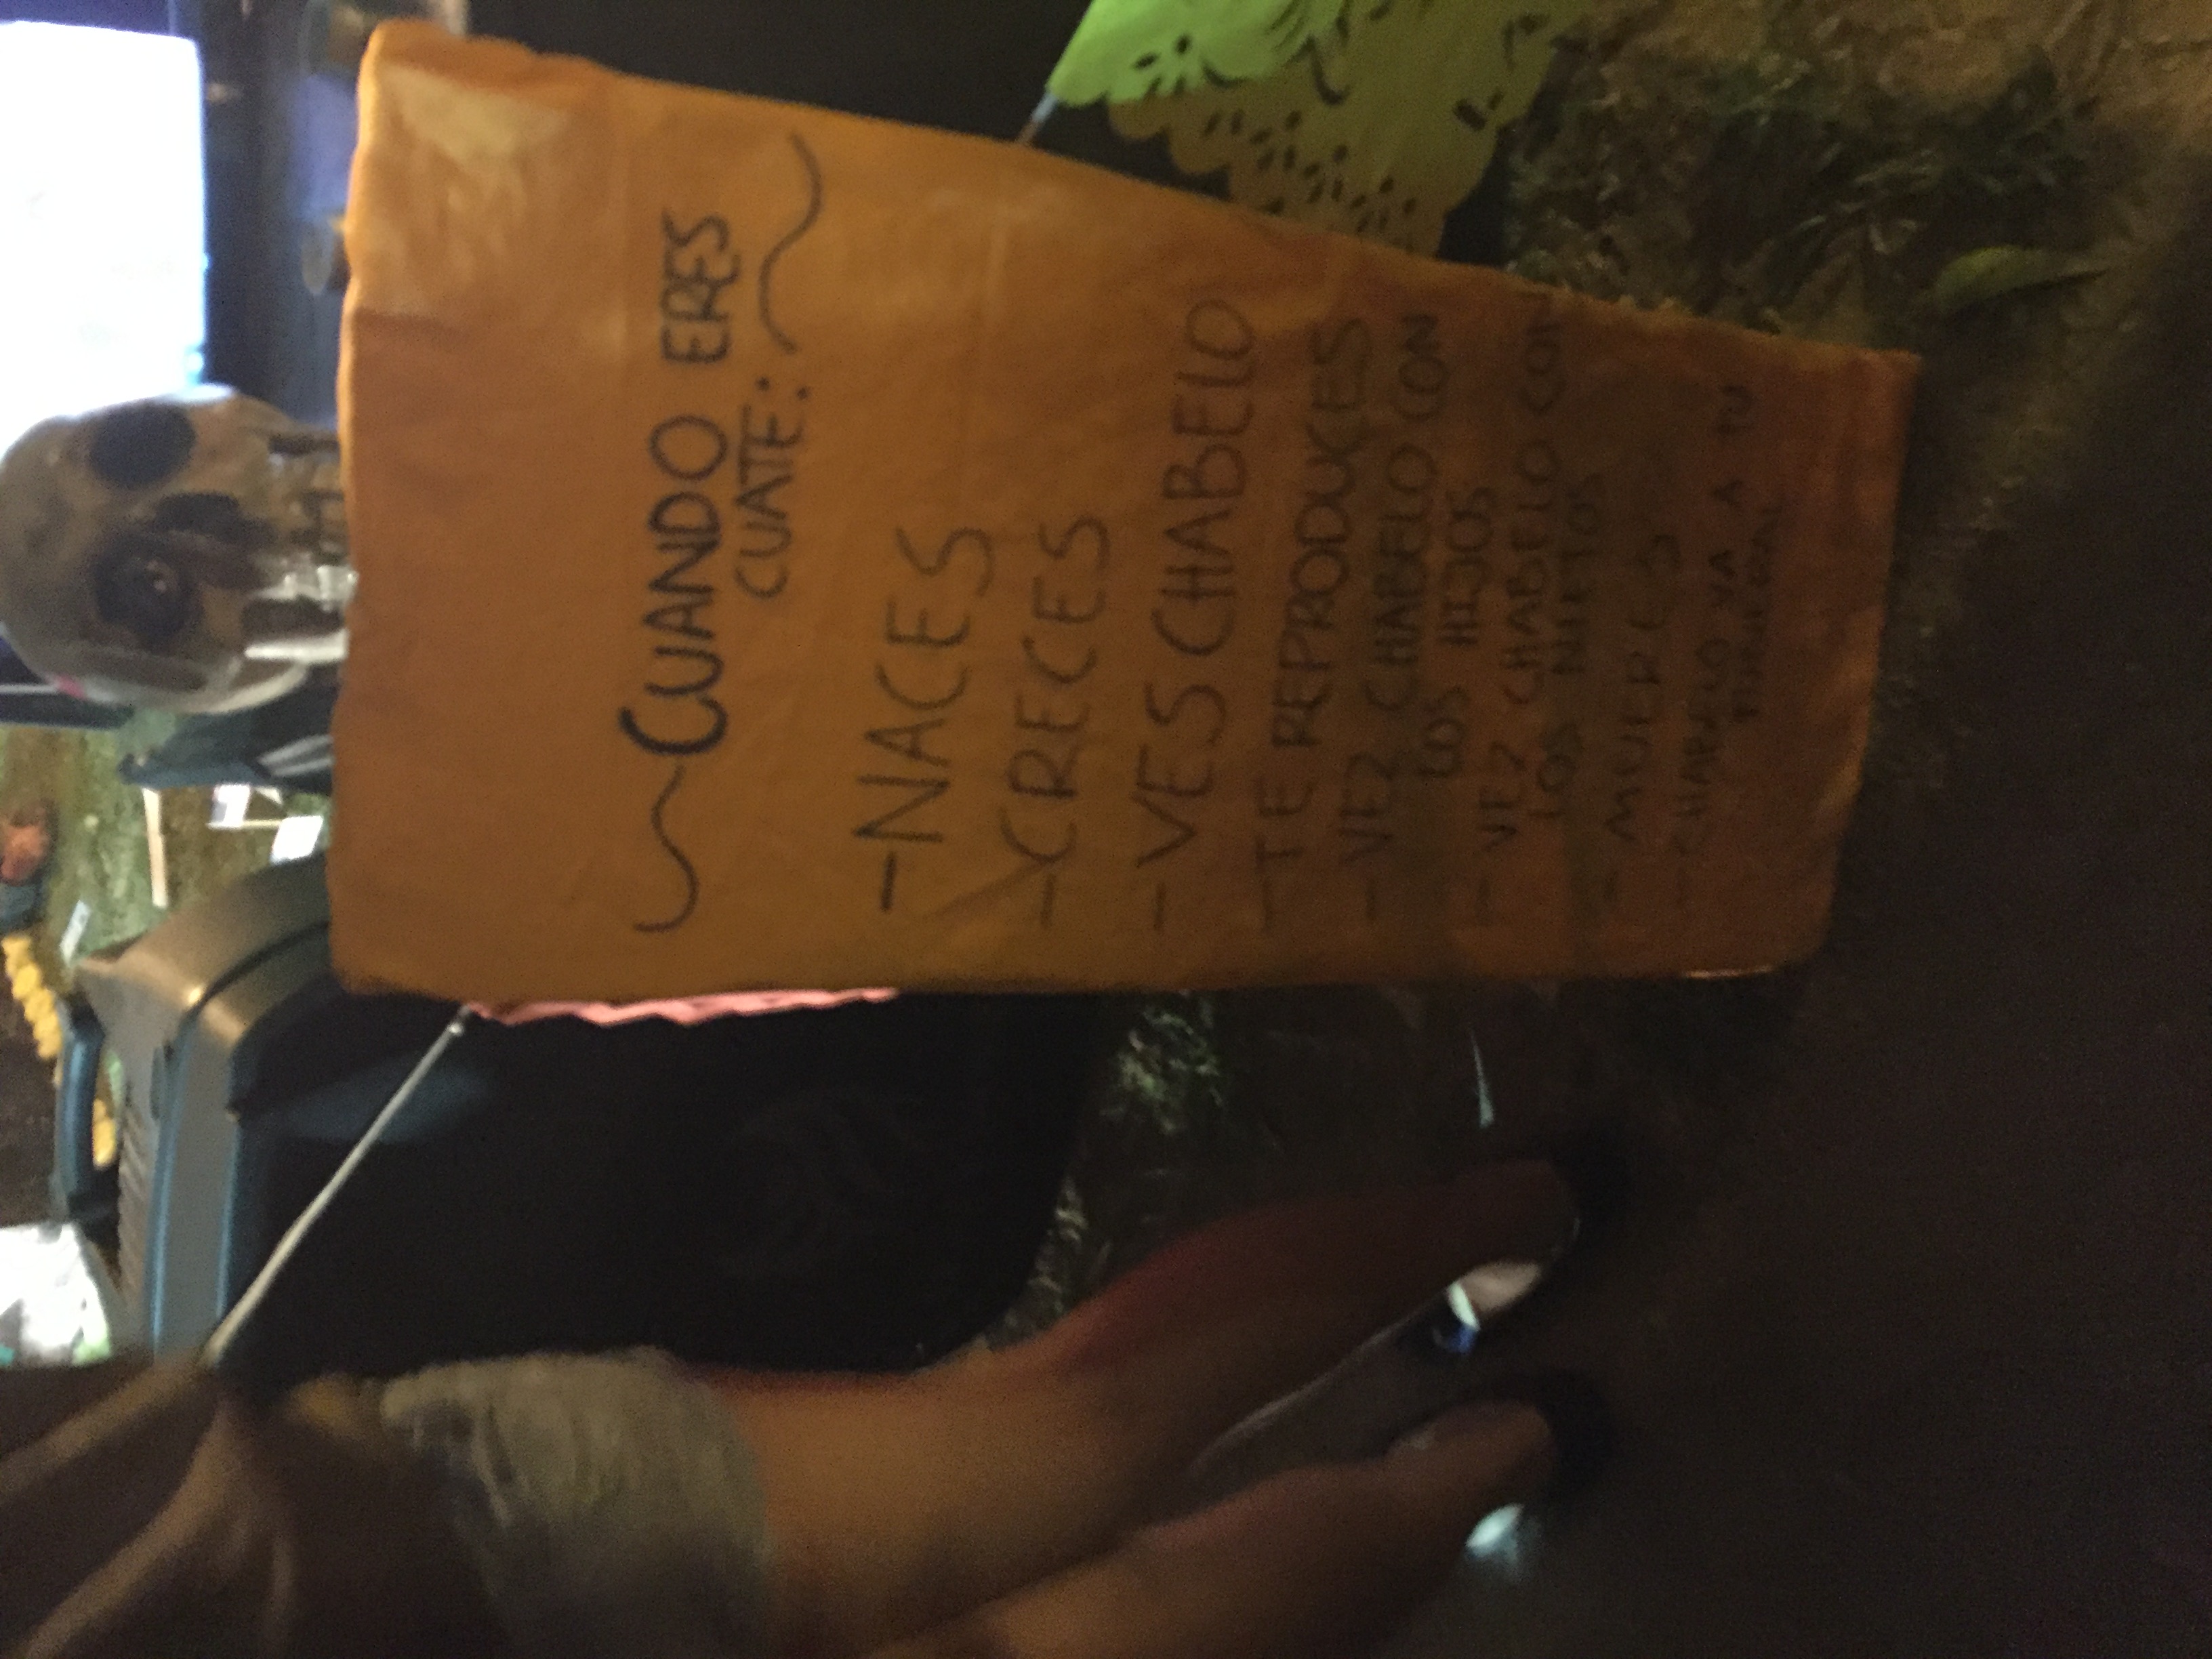 CUANDO ERES
CUATE:
-NACES
-CRECES
-VES CHABELO
-TE REPRODUCES
-VEZ CHABELO CON
LOS HIJOS
-VEZ CHABELO CON
LOS NIETOS
-MUERES
-CHABELO VA A TU
FUNERAL